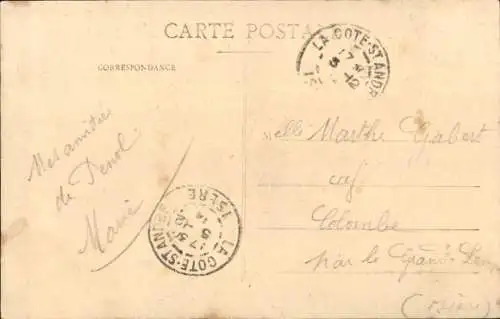 CARTE POSTA
CORRESPONDANCE
LA COTE-ST ANDR
17
5 -12
IS
Mes amitiés
de Penol
Marie
LA COTE-ST ANDRE
ISERE
17
5 -12
elle Marthe Gabert
caf
Colombe
par le Grand-Lem
(Isère)